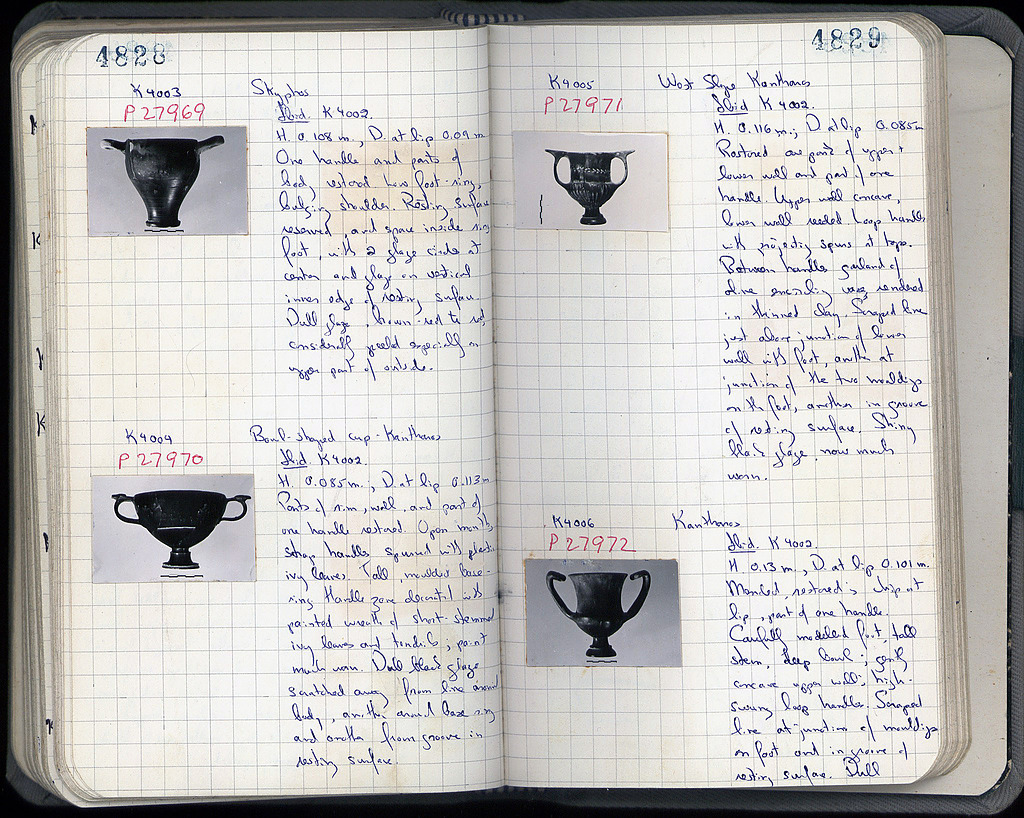 4828
K4003
P27969
Skyphos
Ibid. K4002.
H. 0.108 m., D. at lip 0.09 m
One handle and parts of
body restored. Low foot-ring,
bulging shoulder. Resting surface
reserved, and space inside ring
foot, with 2 glaze circles at
center and glaze on vertical
inner edge of resting surface.
Dull glaze, brown-red to red,
considerably peeled especially on
upper part of outside.
K4004
P27970
Bowl-shaped cup-Kantharos
Ibid. K4002.
H. 0.085 m., D. at lip 0.113 m
Parts of rim, wall, and part of
one handle restored. Open mouth,
strap handles spurred with plastic
ivy leaves. Tall, moulded base-
ring. Handle zone decorated with
painted wreath of short-stemmed
ivy leaves and tendrils; paint
much worn. Dull black glaze
scratched away from line around
body, another around base ring
and another from groove in
resting surface.
4829
K4005
P27971
West Slope Kantharos
Ibid K4002.
H. 0.116 m.; D. at lip 0.085m
Restored are parts of upper +
lower wall and part of one
handle. Upper wall concave,
lower wall reeded. Loop handles
with projecting spurs at tops.
Between handles garland of
olive encircling vase, rendered
in thinned clay. Scraped line
just above junction of lower
wall with foot, another at
junction of the two mouldings
on the foot, another in groove
of resting surface. Shiny
black glaze, now much
worn.
K4006
P27972
Kantharos
Ibid. K4002.
H. 0.13 m., D. at lip 0.101 m.
Mended, restored; chip at
lip, part of one handle.
Carefully modeled foot, tall
stem, deep bowl; gently
concave upper wall; high-
swung loop handles. Scraped
line at junction of mouldings
on foot and in groove of
resting surface. Dull